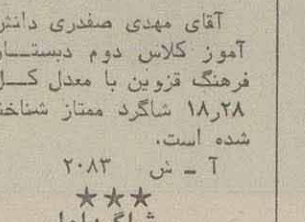 آقای مهدی صفدری دانش
آموز کلاس دوم دبستــان
فرهنگ قزوین با معدل کــل
۱۸ر۲۸ شاگرد ممتاز شناخته
شده است.
آ ــ ش ۲۰۸۳
★★★